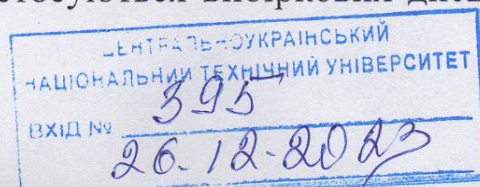 вибіркових
ЦЕНТРАЛЬНОУКРАЇНСЬКИЙ
НАЦІОНАЛЬНИЙ ТЕХНІЧНИЙ УНІВЕРСИТЕТ
ВХІД №
395
26.12.2023